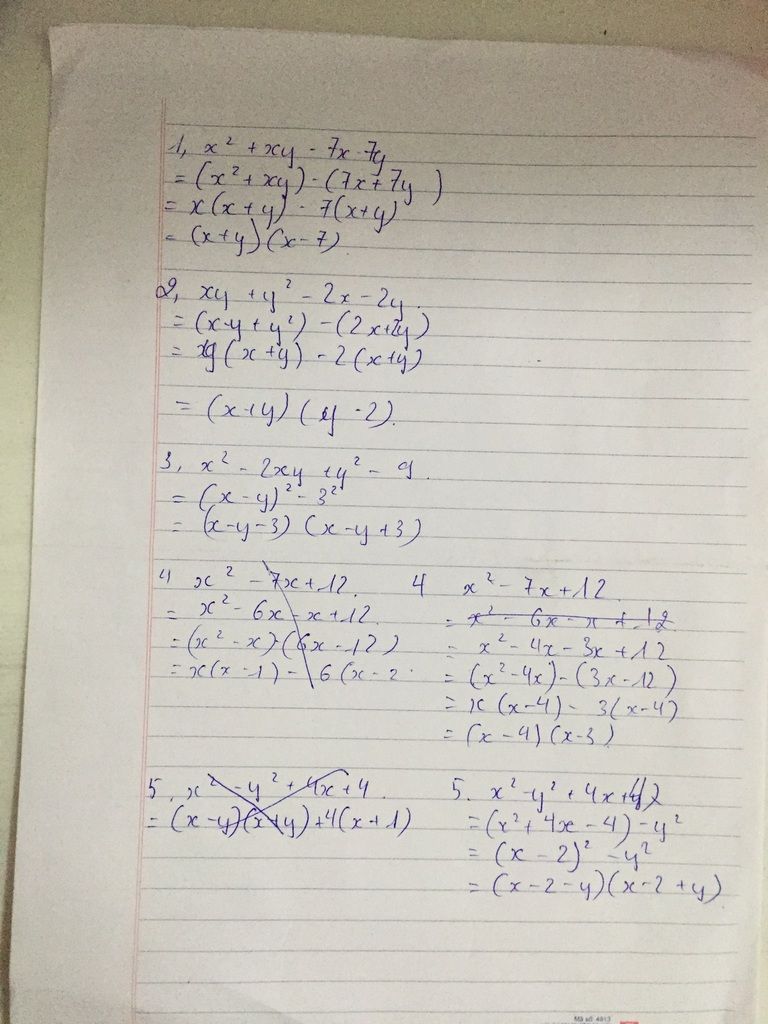 1, x² + xy - 7x - 7y
= (x² + xy) - (7x + 7y)
= x(x + y) - 7(x+y)
= (x+y)(x-7)
2, xy + y² - 2x - 2y.
= (xy + y²) - (2x+2y)
= y(x+y) - 2(x+y)
= (x+y)(y-2).
3, x² - 2xy + y² - 9.
= (x-y)² - 3²
= (x-y-3)(x-y+3)
4 x² - 7x + 12.
= x² - 6x - x + 12.
= (x² - x)-(6x - 12)
= x(x-1) - 6(x-2
4 x² - 7x + 12.
= x² - 6x - x + 12
= x² - 4x - 3x + 12
= (x²-4x)-(3x-12)
= x(x-4) - 3(x-4)
= (x-4)(x-3)
5, x² - y² + 4x + 4.
= (x-y)(x+y)+4(x+1)
5. x² - y² + 4x +
= (x² + 4x - 4) - y²
= (x-2)² - y²
= (x-2-y)(x-2+y)
Mã số: 4813